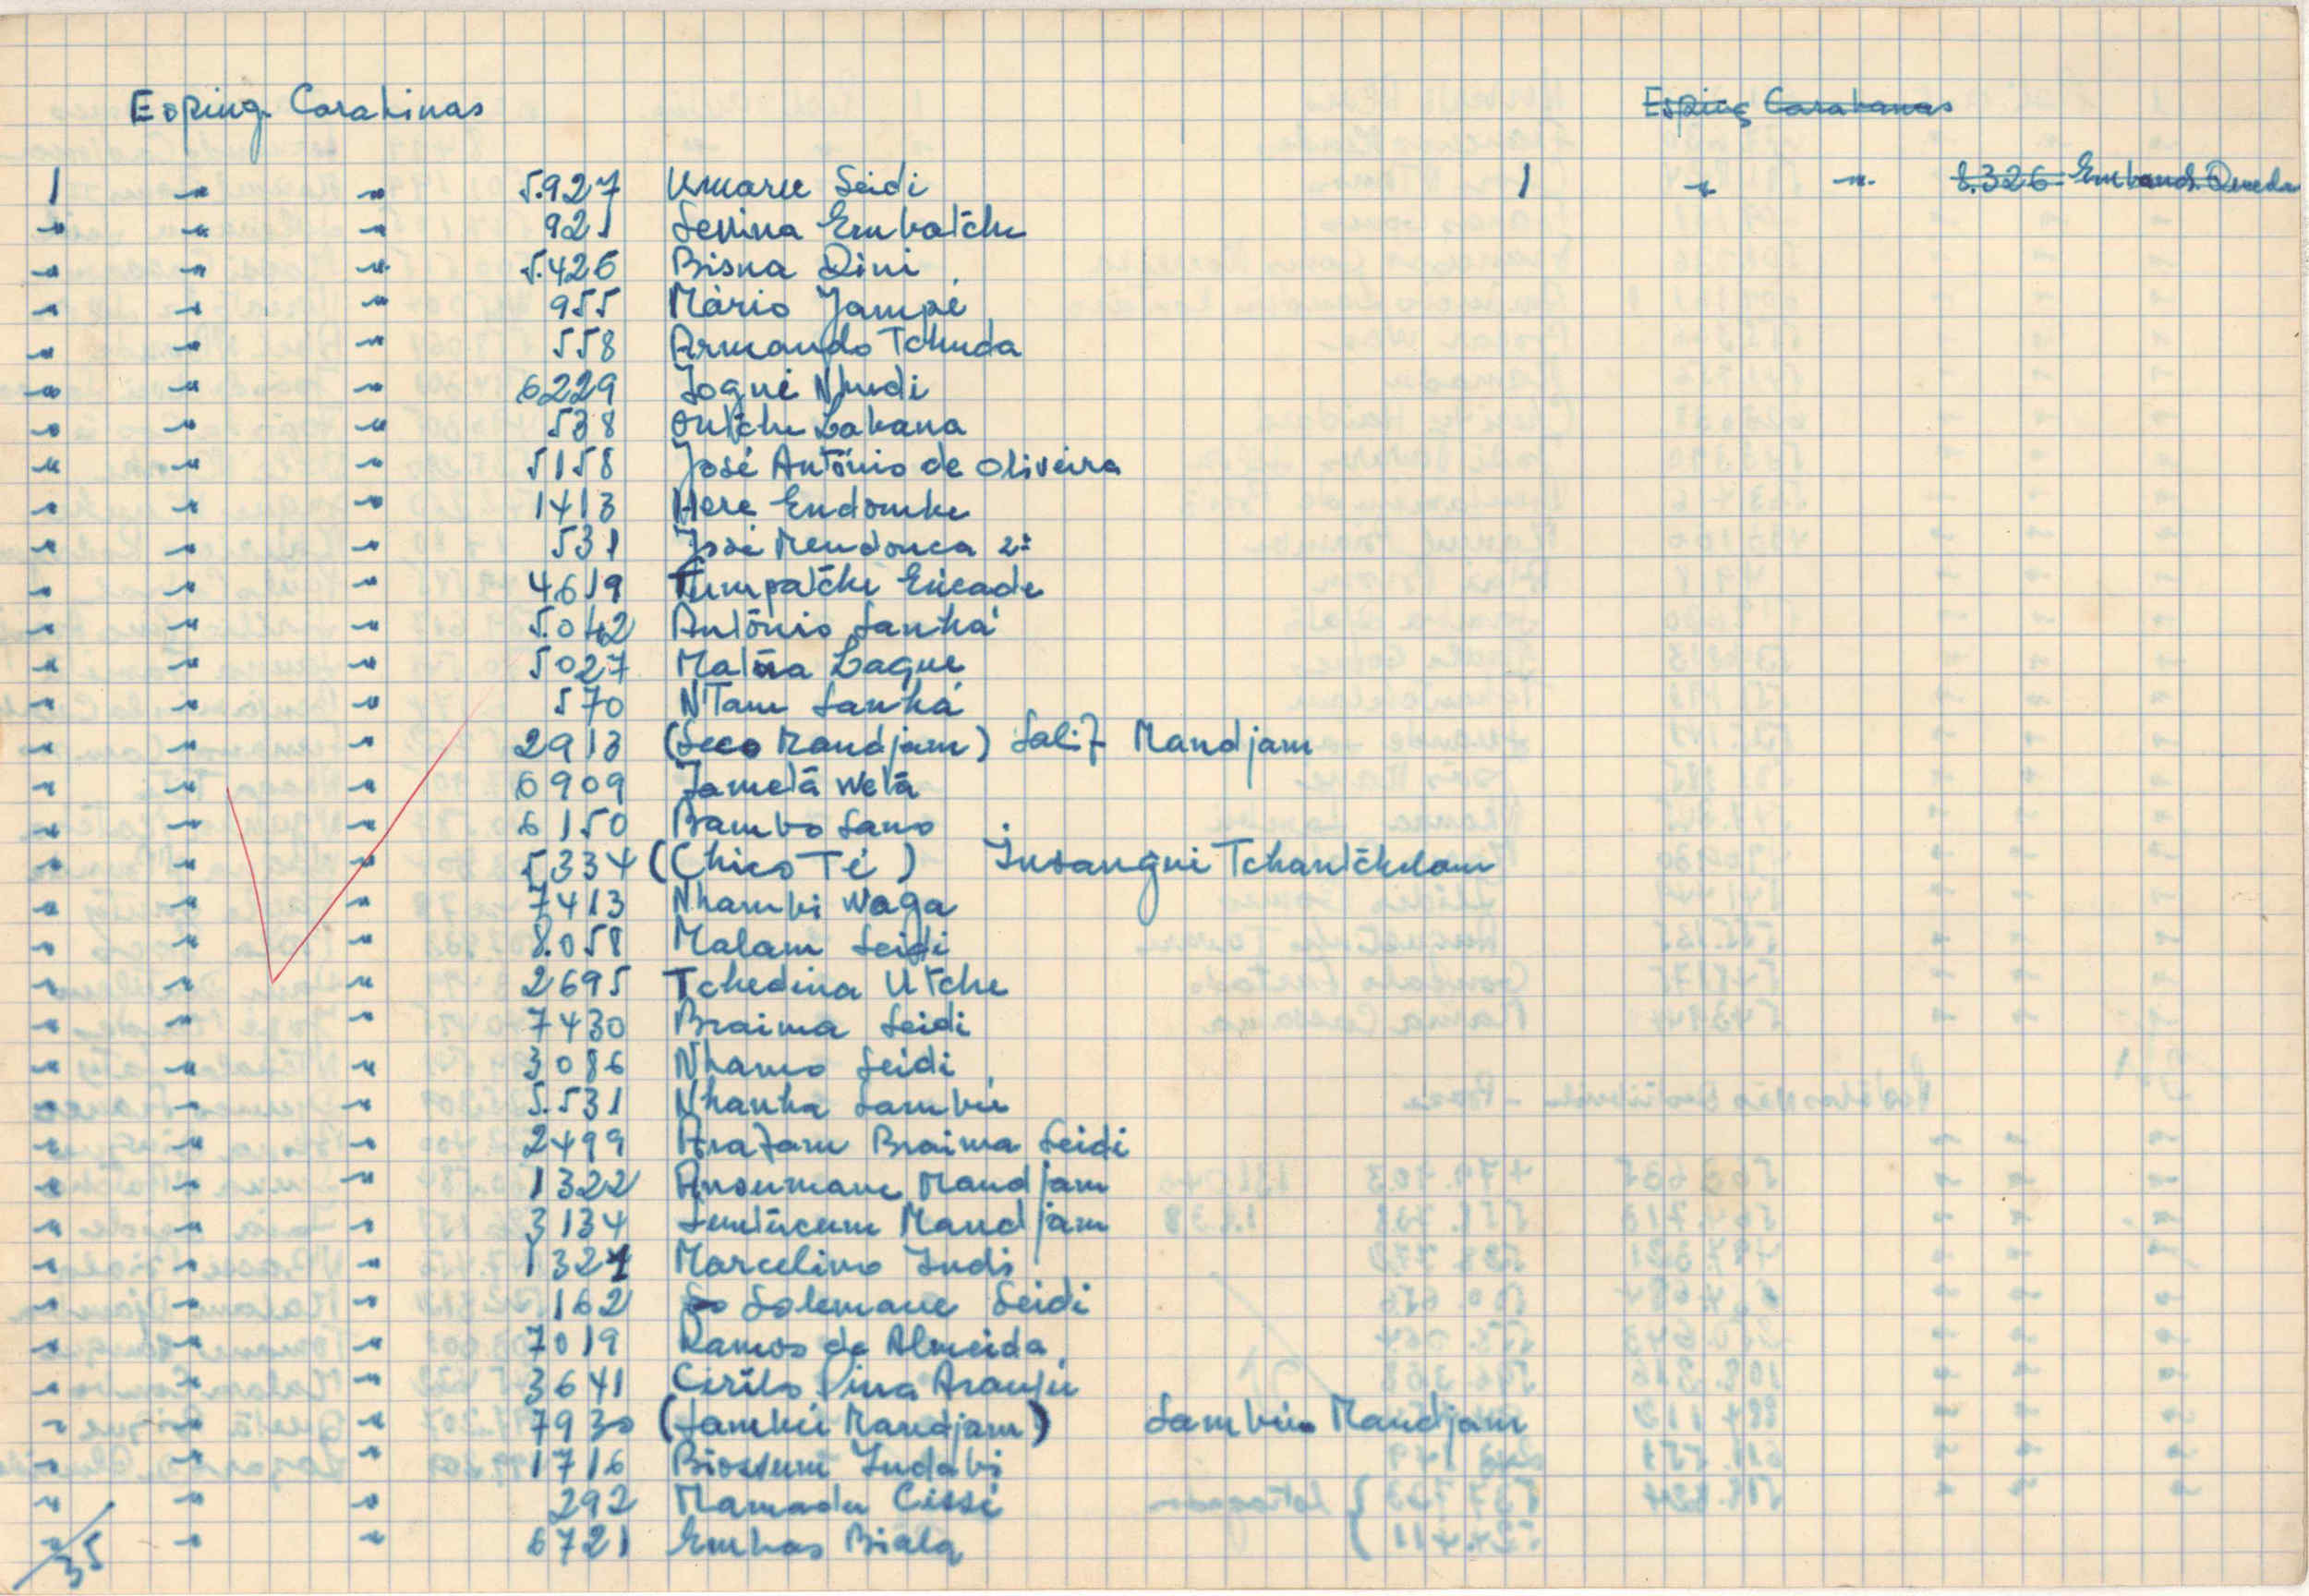 Esping. Carabinas
Esping Carabanas
1 " " 5.927 Umaru Seidi
1 " " 8.326 Emband. Queda
" " " 921 Senina Embatche
" " " 5.426 Bisna Dini
" " " 955 Mário Jampé
" " " 558 Armando Tchuda
" " " 6229 Jogué Nhudi
" " " 538 Ontche Labana
" " " 5158 José António de Oliveira
" " " 1413 Here Endombe
" " " 531 José Mendonca 2º
" " " 4619 Tumpatche Encade
" " " 5.042 António Sanhá
" " " 5027 Matna Lague
" " " 570 NTam Sanhá
" " " 2913 (Seco Mandjam) Salif Mandjam
" " " 6909 Jametá Wetá
" " " 6150 Bambo Sano
" " " 5334 (Chico Té) Insangui Tchantchelam
" " " 7413 Nhambi Waga
" " " 8.058 Malam Seidi
" " " 2695 Tchedina Utche
" " " 7430 Braima Seidi
" " " 3086 Nhamo Seidi
" " " 5.531 Nhanha Sambú
" " " 2499 Arafam Braima Seidi
" " " 1322 Ansumane Mandjam
" " " 3134 Suntucum Mandjam
" " " 1321 Marcelino Indi
" " " 162 So Solemane Seidi
" " " 7019 Ramos de Almeida
" " " 3641 Cirilo Pina Araujo
" " " 7930 (Sambú Mandjam) Sambú Mandjam
" " " 1716 Biossum Indabi
" " " 292 Mamadu Cissé
" " " 6721 Embas Biala
35